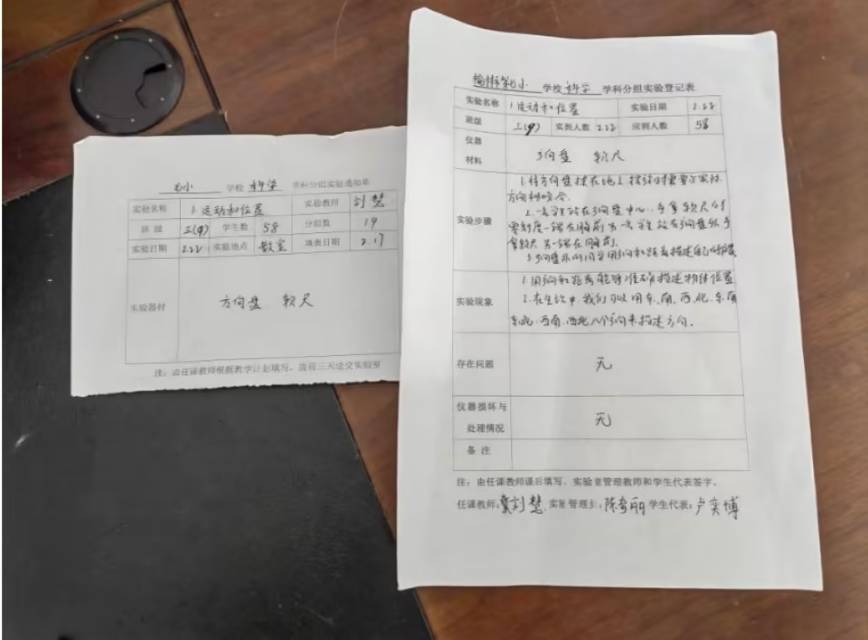 学校 科学 学科分组实验通知单
实验名称 1.运动和位置 实验教师 刘慧
班级 三(4) 学生数 58 分组数 19
实验日期 2.22 实验地点 教室 填表日期 2.17
实验器材 方向盘 软尺
注:由任课教师根据教学计划填写,提前三天送交实验室
学校 科学 学科分组实验登记表
实验名称 1.运动和位置 实验日期 2.22
班级 三(4) 实到人数 应到人数 58
仪器
材料 方向盘 软尺
实验步骤
1.将方向盘放在地上,
方向
2.一名学生站在方向盘中心,手拿软尺的
零刻度一端在胸前,另一名学生站在方向盘外手
拿软尺另一端在胸前。
3.方向盘
实验现象
1.用方向和距离能够准确描述物体位置
2.在生活中,我们可以用东、南、西、北、东南
东北、西南、西北八个方向来描述方向。
存在问题 无
仪器损坏与
处理情况 无
备注
注:由任课教师课后填写,实验室管理教师和学生代表签字。
任课教师: 刘慧 实验管理员: 学生代表: 卢奕博